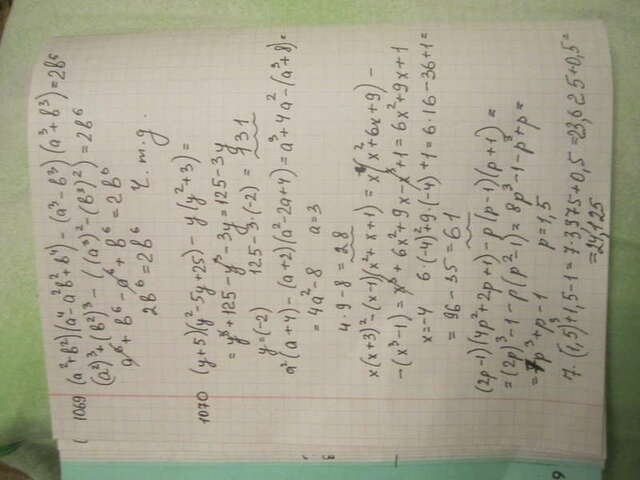 1069 (a²+b²)(a⁴-a²b²+b⁴) - (a³-b³)(a³+b³)=2b⁶
(a²)³+(b²)³ - ((a³)²-(b³)²)=2b⁶
a⁶+b⁶-a⁶+b⁶=2b⁶
2b⁶=2b⁶ Ч.т.д.
1070 (y+5)(y²-5y+25) - y(y²+3)=
=y³+125-y³-3y=125-3y
y=(-2) 125-3·(-2) = 131
a²(a+4) - (a+2)(a²-2a+4)=a³+4a²-(a³+8)=
=4a²-8 a=3
4·9-8=28
x(x+3)²-(x-1)(x²+x+1) = x(x²+6x+9) -
-(x³-1)=x³+6x²+9x-x³+1=6x²+9x+1
x=-4 6·(-4)²+9·(-4)+1=6·16-36+1=
=96-35=61
(2p-1)(4p²+2p+1)-p(p-1)(p+1)=
=(2p)³-1-p(p²-1)=8p³-1-p³+p=
=7p³+p-1 p=1,5
7·(1,5)³+1,5-1=7·3,375+0,5=23,625+0,5=
=24,125
9